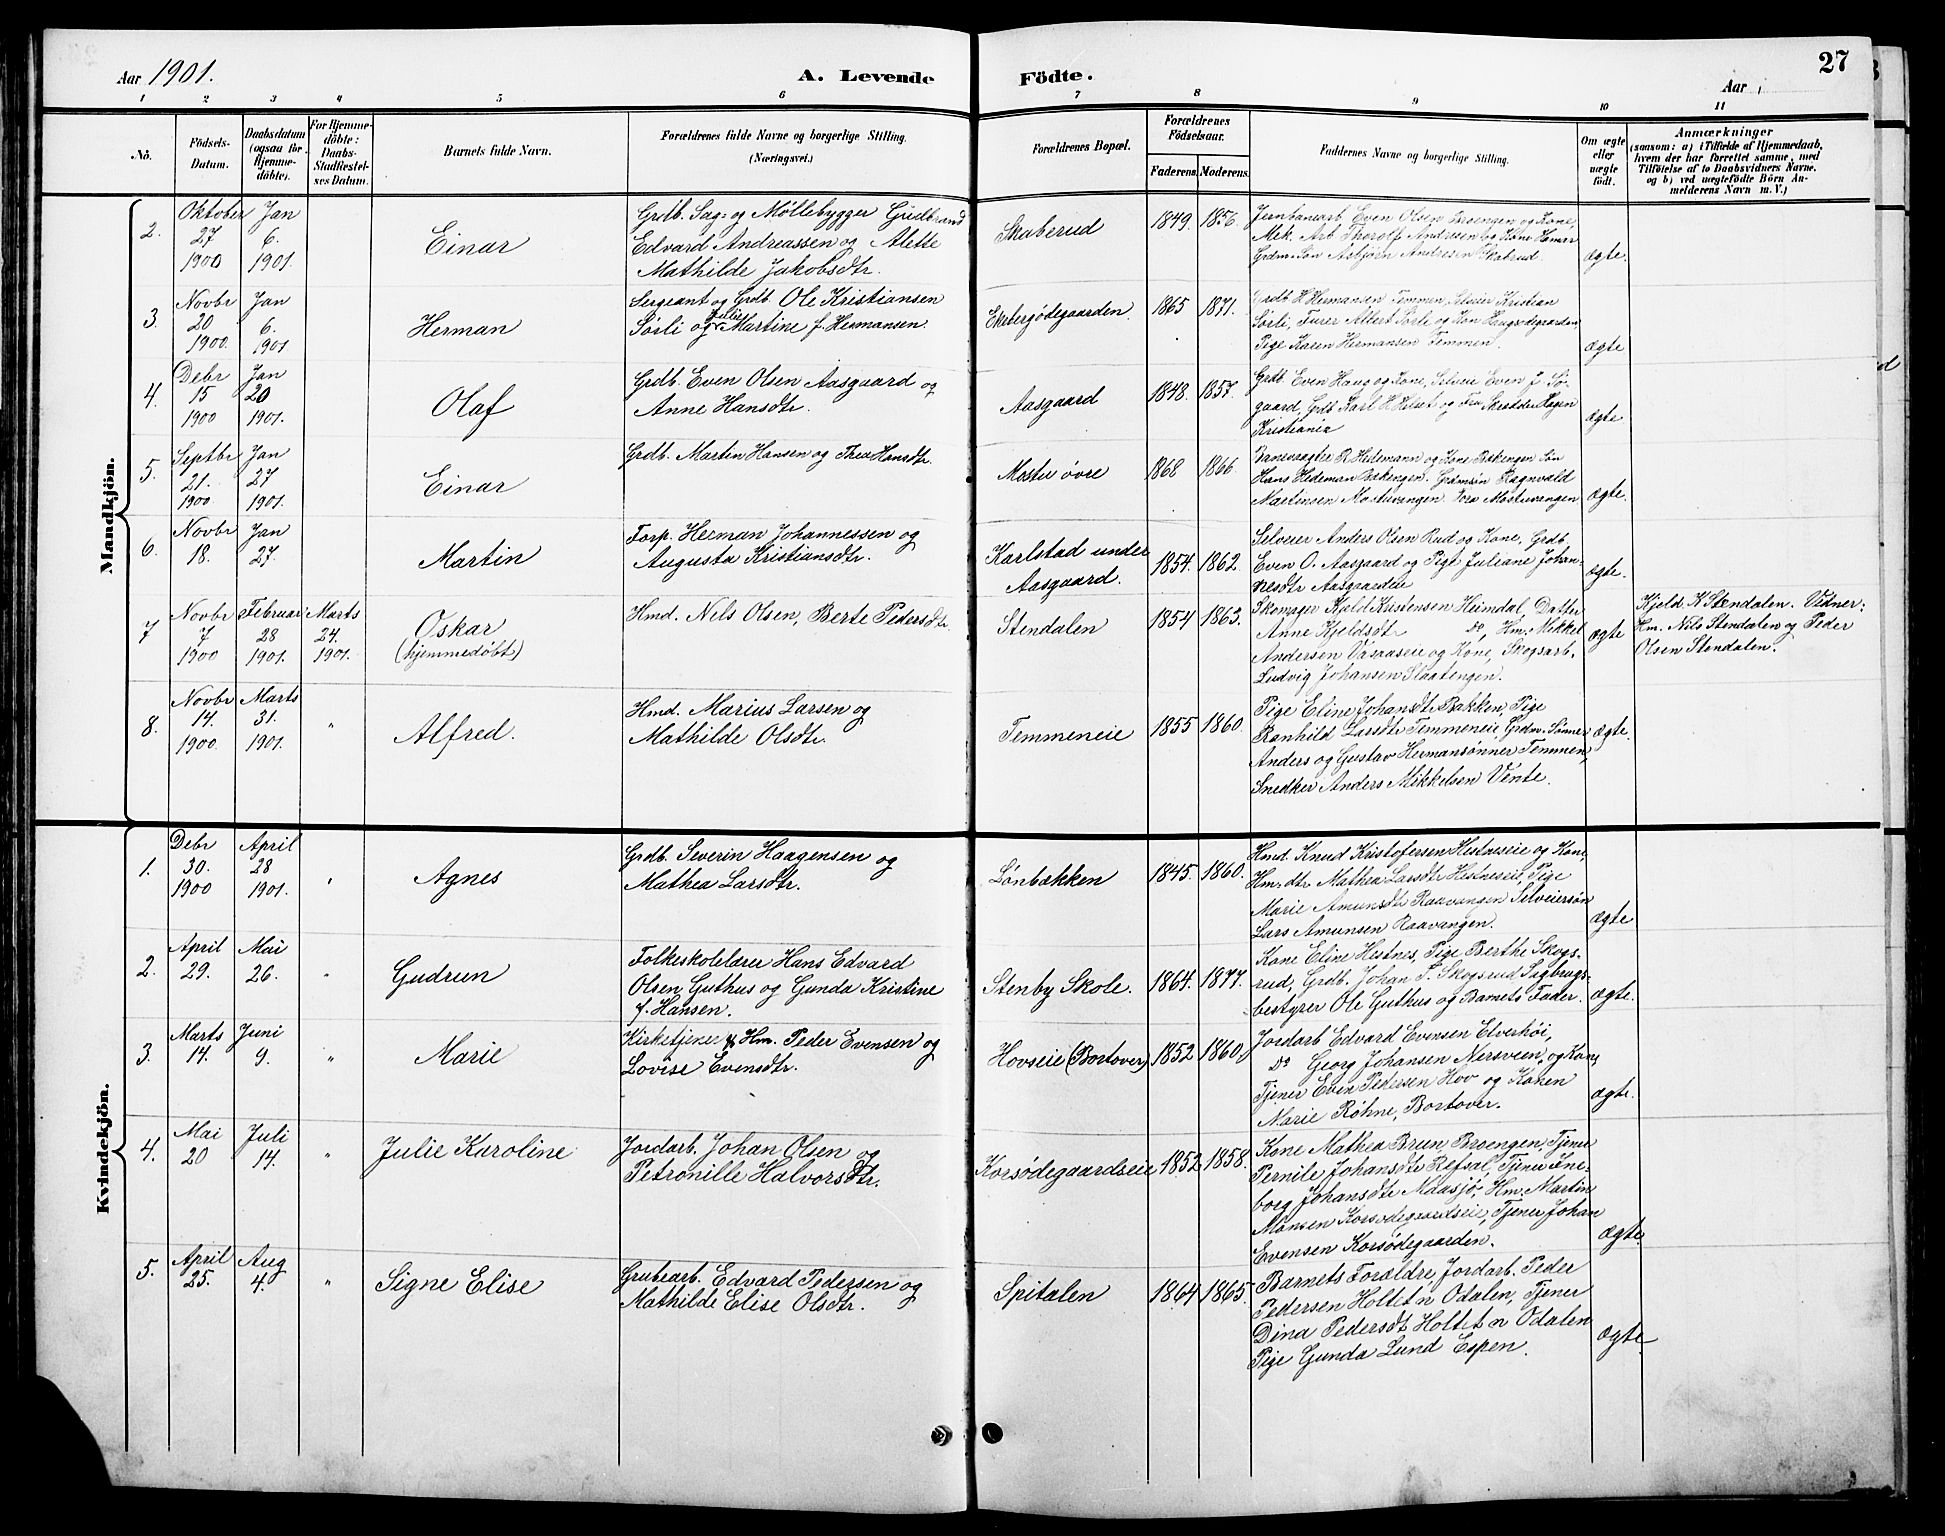 Aar 1901.
A. Levende Födte.
Aar
27
1 2 3 4 5 6 7 8 9 10 11
No.
Födsels-Datum.
Daabsdatum (ogsaa for Hjemme-döbte).
For Hjemme-döbte: Daabs-Stadfæstel-ses Datum.
Barnets fulde Navn.
Forældrenes fulde Navne og borgerlige Stilling.
(Næringsvei.)
Forældrenes Bopæl.
Forældrenes Födselsaar.
Faderens. Moderens.
Faddernes Navne og borgerlige Stilling.
Om ægte eller uægte født.
Anmærkninger
(saasom: a) i Tilfælde af Hjemmedaab, hvem der har forrettet samme, med Tilföielse af to Daabsvidners Navne, og b) ved uægtefödte Börn An-melderens Navn m. V.)
Mandkjön.
2. Oktober 27 1900 Jan 6. 1901. Einar
Grdb. Sag- og Møllebygger Gudbrand
Edvard Andreassen og Alette
Mathilde Jakobsdtr.
Skaberud 1849. 1856.
Jernbanearb Even Olsen Broengen og Kone,
Mek. Arb Thorolf Andresen og Kone Hamar
Grdm. Søn Asbjørn Andresen Skabrud.
ægte.
3. Novbr 20 1900. Jan 6. 1901 Herman
Sergeant og Grdb. Ole Kristiansen
Sørli og Julie Martine f. Hermansen.
Ekebergødegaarden 1865 1871.
Grdb H Hermansen Temmen, Selveier Kristian
Sörli, Furer Albert Sörli og Kon Haugsødegaarden
Pige Karen Hermansen Temmen.
ægte
4. Debr 15 1900 Jan 20 1901. Olaf
Grdb. Even Olsen Aasgaard og
Anne Hansdtr.
Aasgaard 1848. 1857.
Grdb. Even Haug og Kone, Selveie Even J. Sör-
gaard, Grdb Karl H Helset og Fru Hagen
Kristiania
ægte
5. Septbr 21. 1900 Jan 27 1901. Einar
Grdb. Martin Hansen og Thea Hansdtr.
Mostu övre 1868 1866.
Banevogter R Hedemann og Kone Bækengen Søn
Hans Hedeman Bækengen. Grdmsön Ragnvald
Martinsen Mostuvangen. Tora Mostuvangen
ægte.
6. Novbr 18. Jan 27. Martin
Forp. Herman Johannessen og
Augusta Kristiansdtr.
Karlstad under
Aasgaard.
1854. 1862.
Selveier Anders Olsen Rud og Kone, Grdb.
Even O. Aasgaard og Pige Juliane Johan-
nesdtr Aasgaardeie
ægte.
7 Novbr 7 1900 Februar 28 1901. Marts 24. 1901. Oskar
(hjemmedøbt)
Hmd. Nels Olsen, Berte Pedersdtr
Stendalen 1854 1863.
Skomager Kjeld Kristensen Heimdal, Datter
Anne Kjeldsdtr do, Hm: Mikkel
Andersen Vasaaseie og Kone, Skogsarb.
Ludvig Johansen Slaatengen.
ægte
Kjeld. K Stendalen. Vidner:
Hm. Nils Stendalen og Peder
Olsen Stendalen.
8. Novbr 14. 1900 Marts 31. 1901. " Alfred.
Hmd. Marius Larsen og
Mathilde Olsdtr.
Temmeneie 1855 1860.
Pige Eline Johansdtr Bakken, Pige
Ranhild Larsdtr Temmeneie, Grdm. Sønner
Anders og Gustav Hermansønner Temmen,
Snedker Anders Mikkelsen Vente.
ægte.
Kvindekjön.
1. Debr 30. 1900 April 28 1901. " Agnes
Grdb. Severin Haagensen og
Mathea Larsdtr.
Lönbækken 1845. 1860.
Hmd. Knud Kristofersen Hestneseie og Kone,
Hm. dtr. Mathea Larsdtr Hestneseie, Pige
Marie Amunsdtr Raavangen Selveiersøn
Lars Amunsen Raavangen.
ægte
2. April 29. Mai 26. " Gudrun
Folkeskolelærer Hans Edvard
Olsen Guthus og Gunda Kristine
f. Hansen.
Stenby Skole. 1864. 1877.
Kone Eline Hestnes, Pige Berthe Skogs-
rud, Grdb. Johan P. Skogsrud Sagbrugs-
bestyrer Ole Guthus og Barnets Fader.
ægte.
3. Marts 14. Juni 9. " Marie
Kirketjener & Hm. Peder Evensen og
Lovise Evensdtr.
Hovseie (Bortover) 1852 1860.
Jordarb Edvard Evensen Elverhöi,
Do Georg Johansen Nersveen, og Kone,
Tjener Even Pedersen Hov og Konen
Marie Röhne, Bortover.
ægte.
4. Mai 20 Juli 14. " Julie Karoline
Jordarb. Johan Olsen og
Petronille Halvorsdtr.
Korsödegaardseie 1852 1858.
Kone Mathea Brun Broengen, Tjener
Pernile Johansdtr Refsal, Tjener Ine-
borg Johansdtr Maasjö, Hm. Martin
Monsen Korsödegaardseie, Tjener Johan
Evensen Korsödegaarden.
ægte.
5. April 25. Aug 4. " Signe Elise
Grubearb. Edvard Pedersen og
Mathilde Elise Olsdtr.
Spitalen 1864 1865.
Barnets Forældre, Jordarb. Peder
Pedersen Holtet n Odalen, Tjener
Dina Pedersdt Holtet n Odalen
Pige Gunda Lund Espen.
ægte